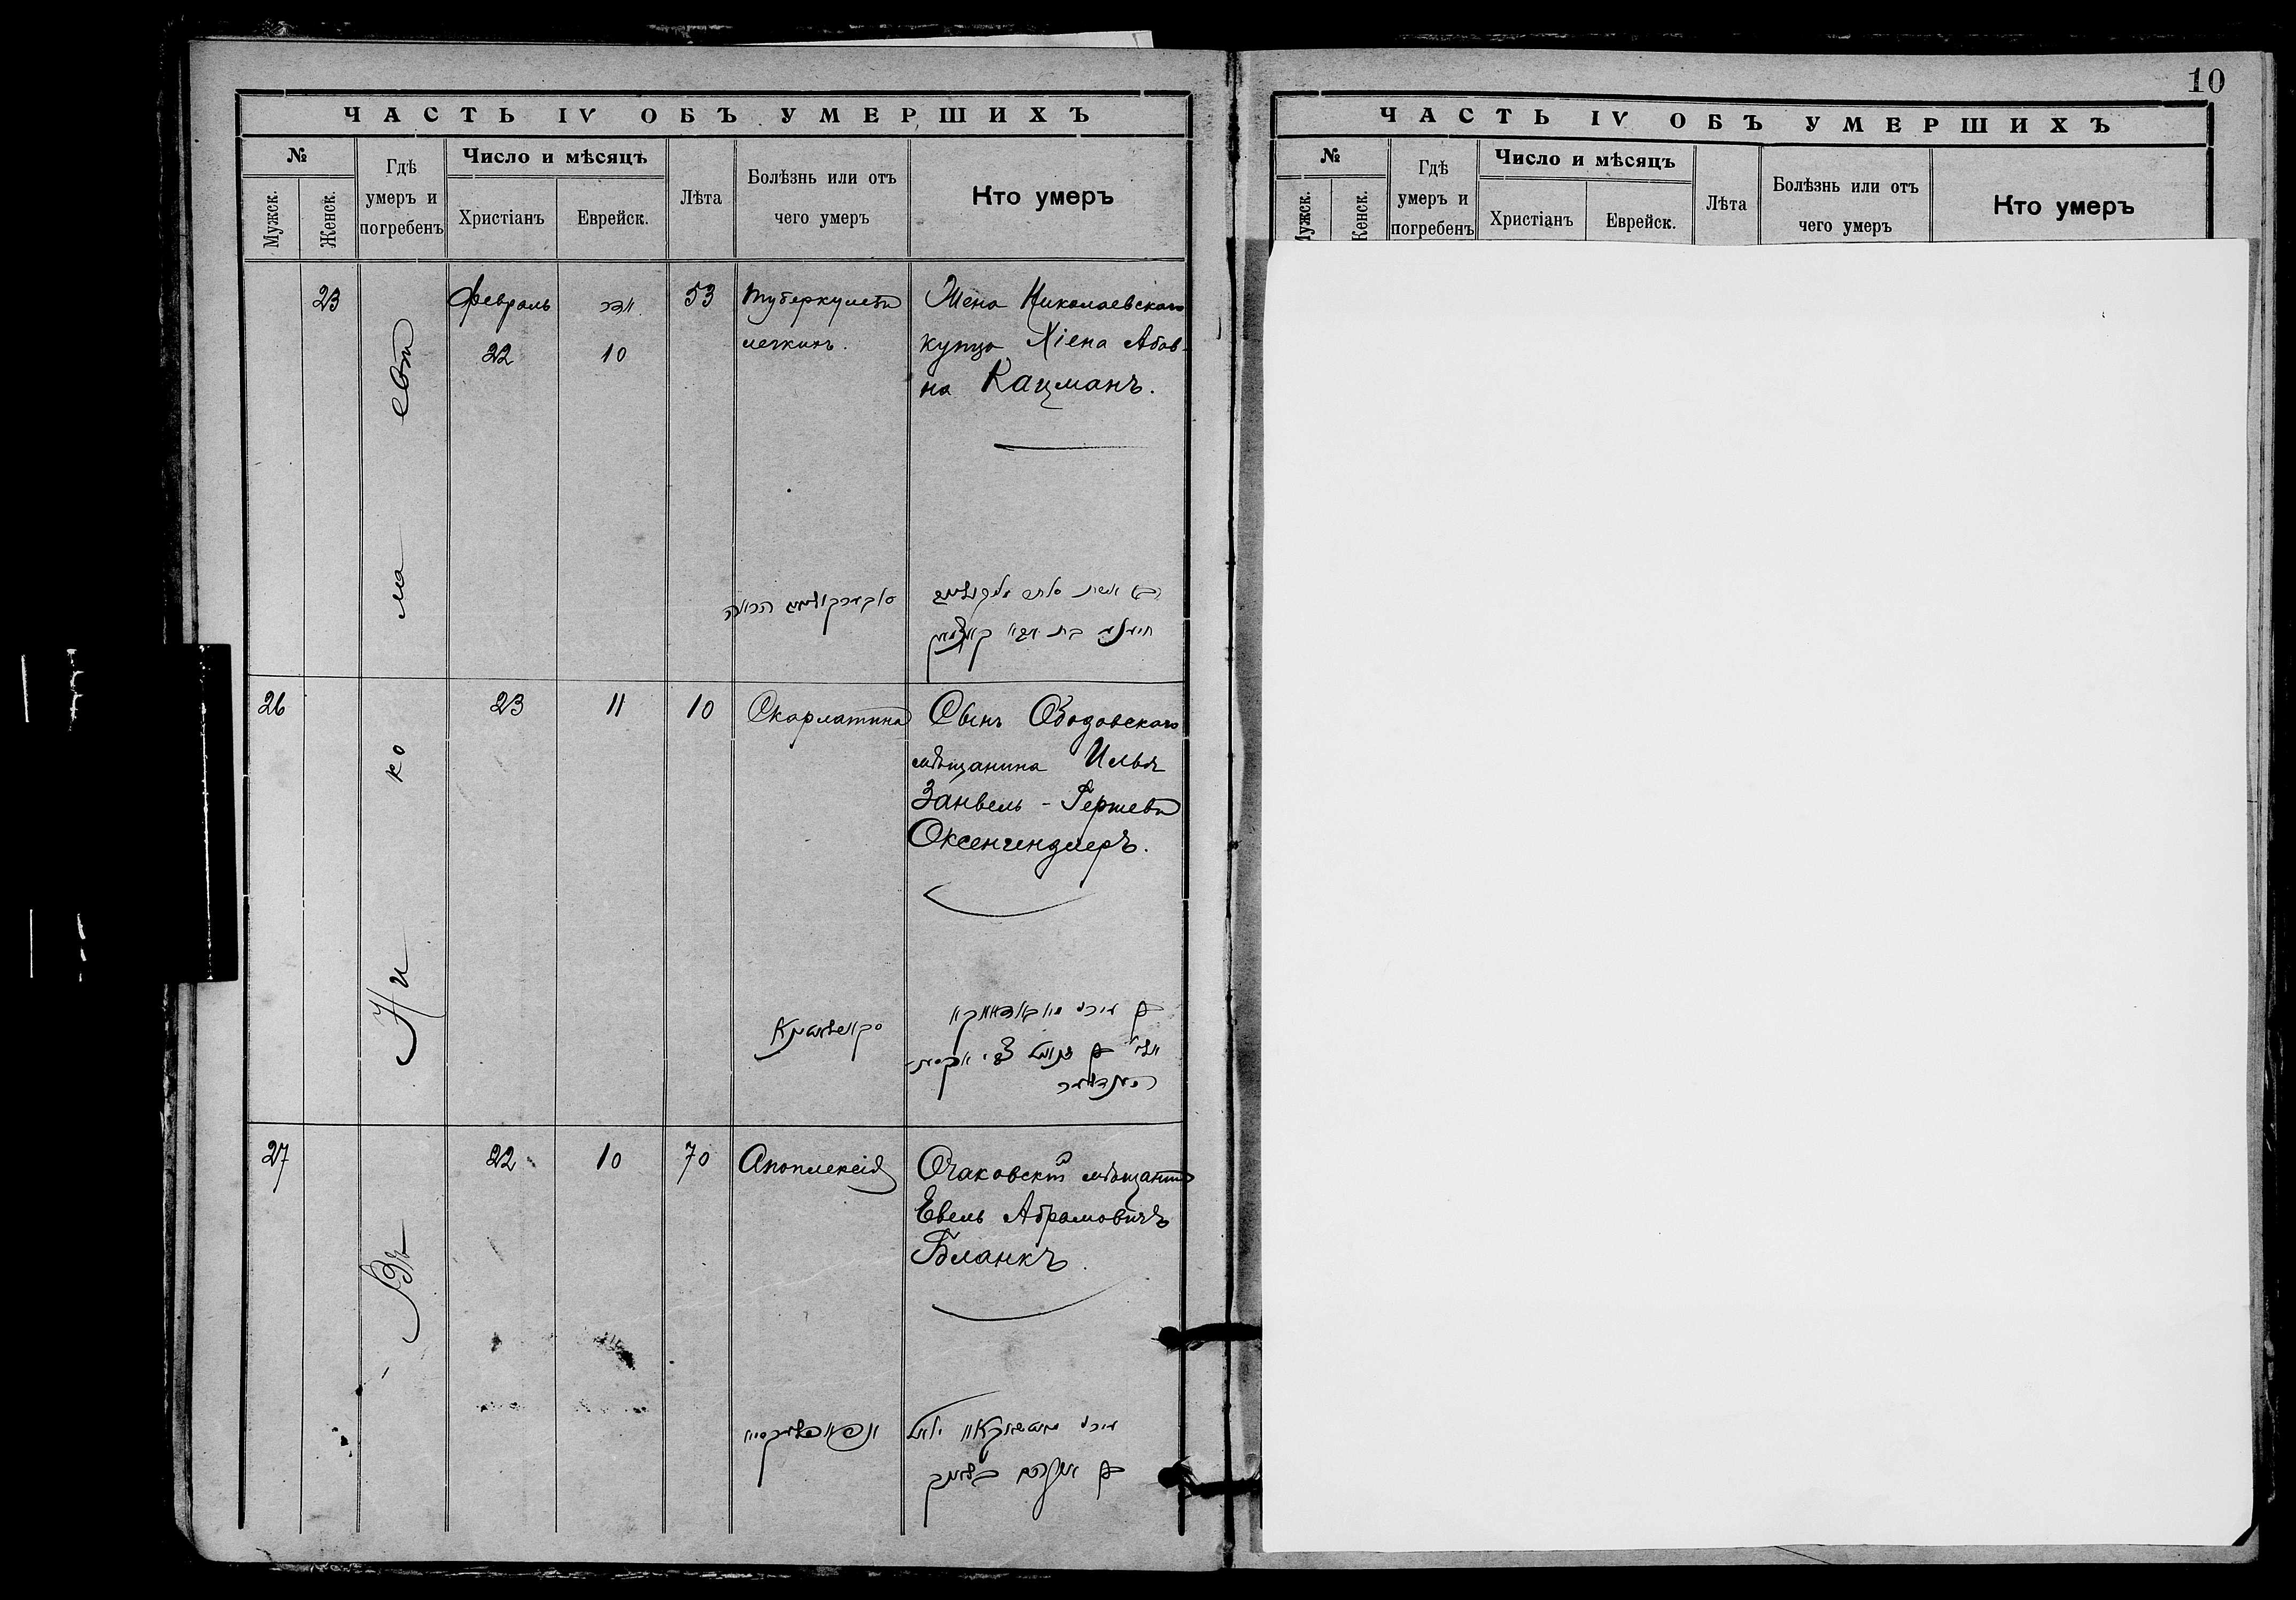 ЧАСТЬ IV ОБЪ УМЕРШИХЪ
№
Мужск.
Женск.
Гдѣ
умеръ и
погребенъ
Число и мѣсяцъ
Христіанъ
Еврейск.
Лѣта
Болѣзнь или отъ
чего умеръ
Кто умеръ
Въ Николаевѣ
23
Февраль
22
אדר
10
53
Туберкулезъ
легкихъ.
Жена Николаевскаго
купца Хіена Абов-
на Кацманъ.
26
23
11
10
Скарлатина
Сынъ Ободовскаго
мѣщанина Илья
Занвель-Гершевъ
Оксенгендлеръ.
27
22
10
70
Апоплексія
Очаковскій мѣщанинъ
Евель Абрамовичъ
Бланкъ.
בן אברהם בלאנק
10
ЧАСТЬ IV ОБЪ УМЕРШИХЪ
№
Мужск.
Женск.
Гдѣ
умеръ и
погребенъ
Число и мѣсяцъ
Христіанъ
Еврейск.
Лѣта
Болѣзнь или отъ
чего умеръ
Кто умеръ